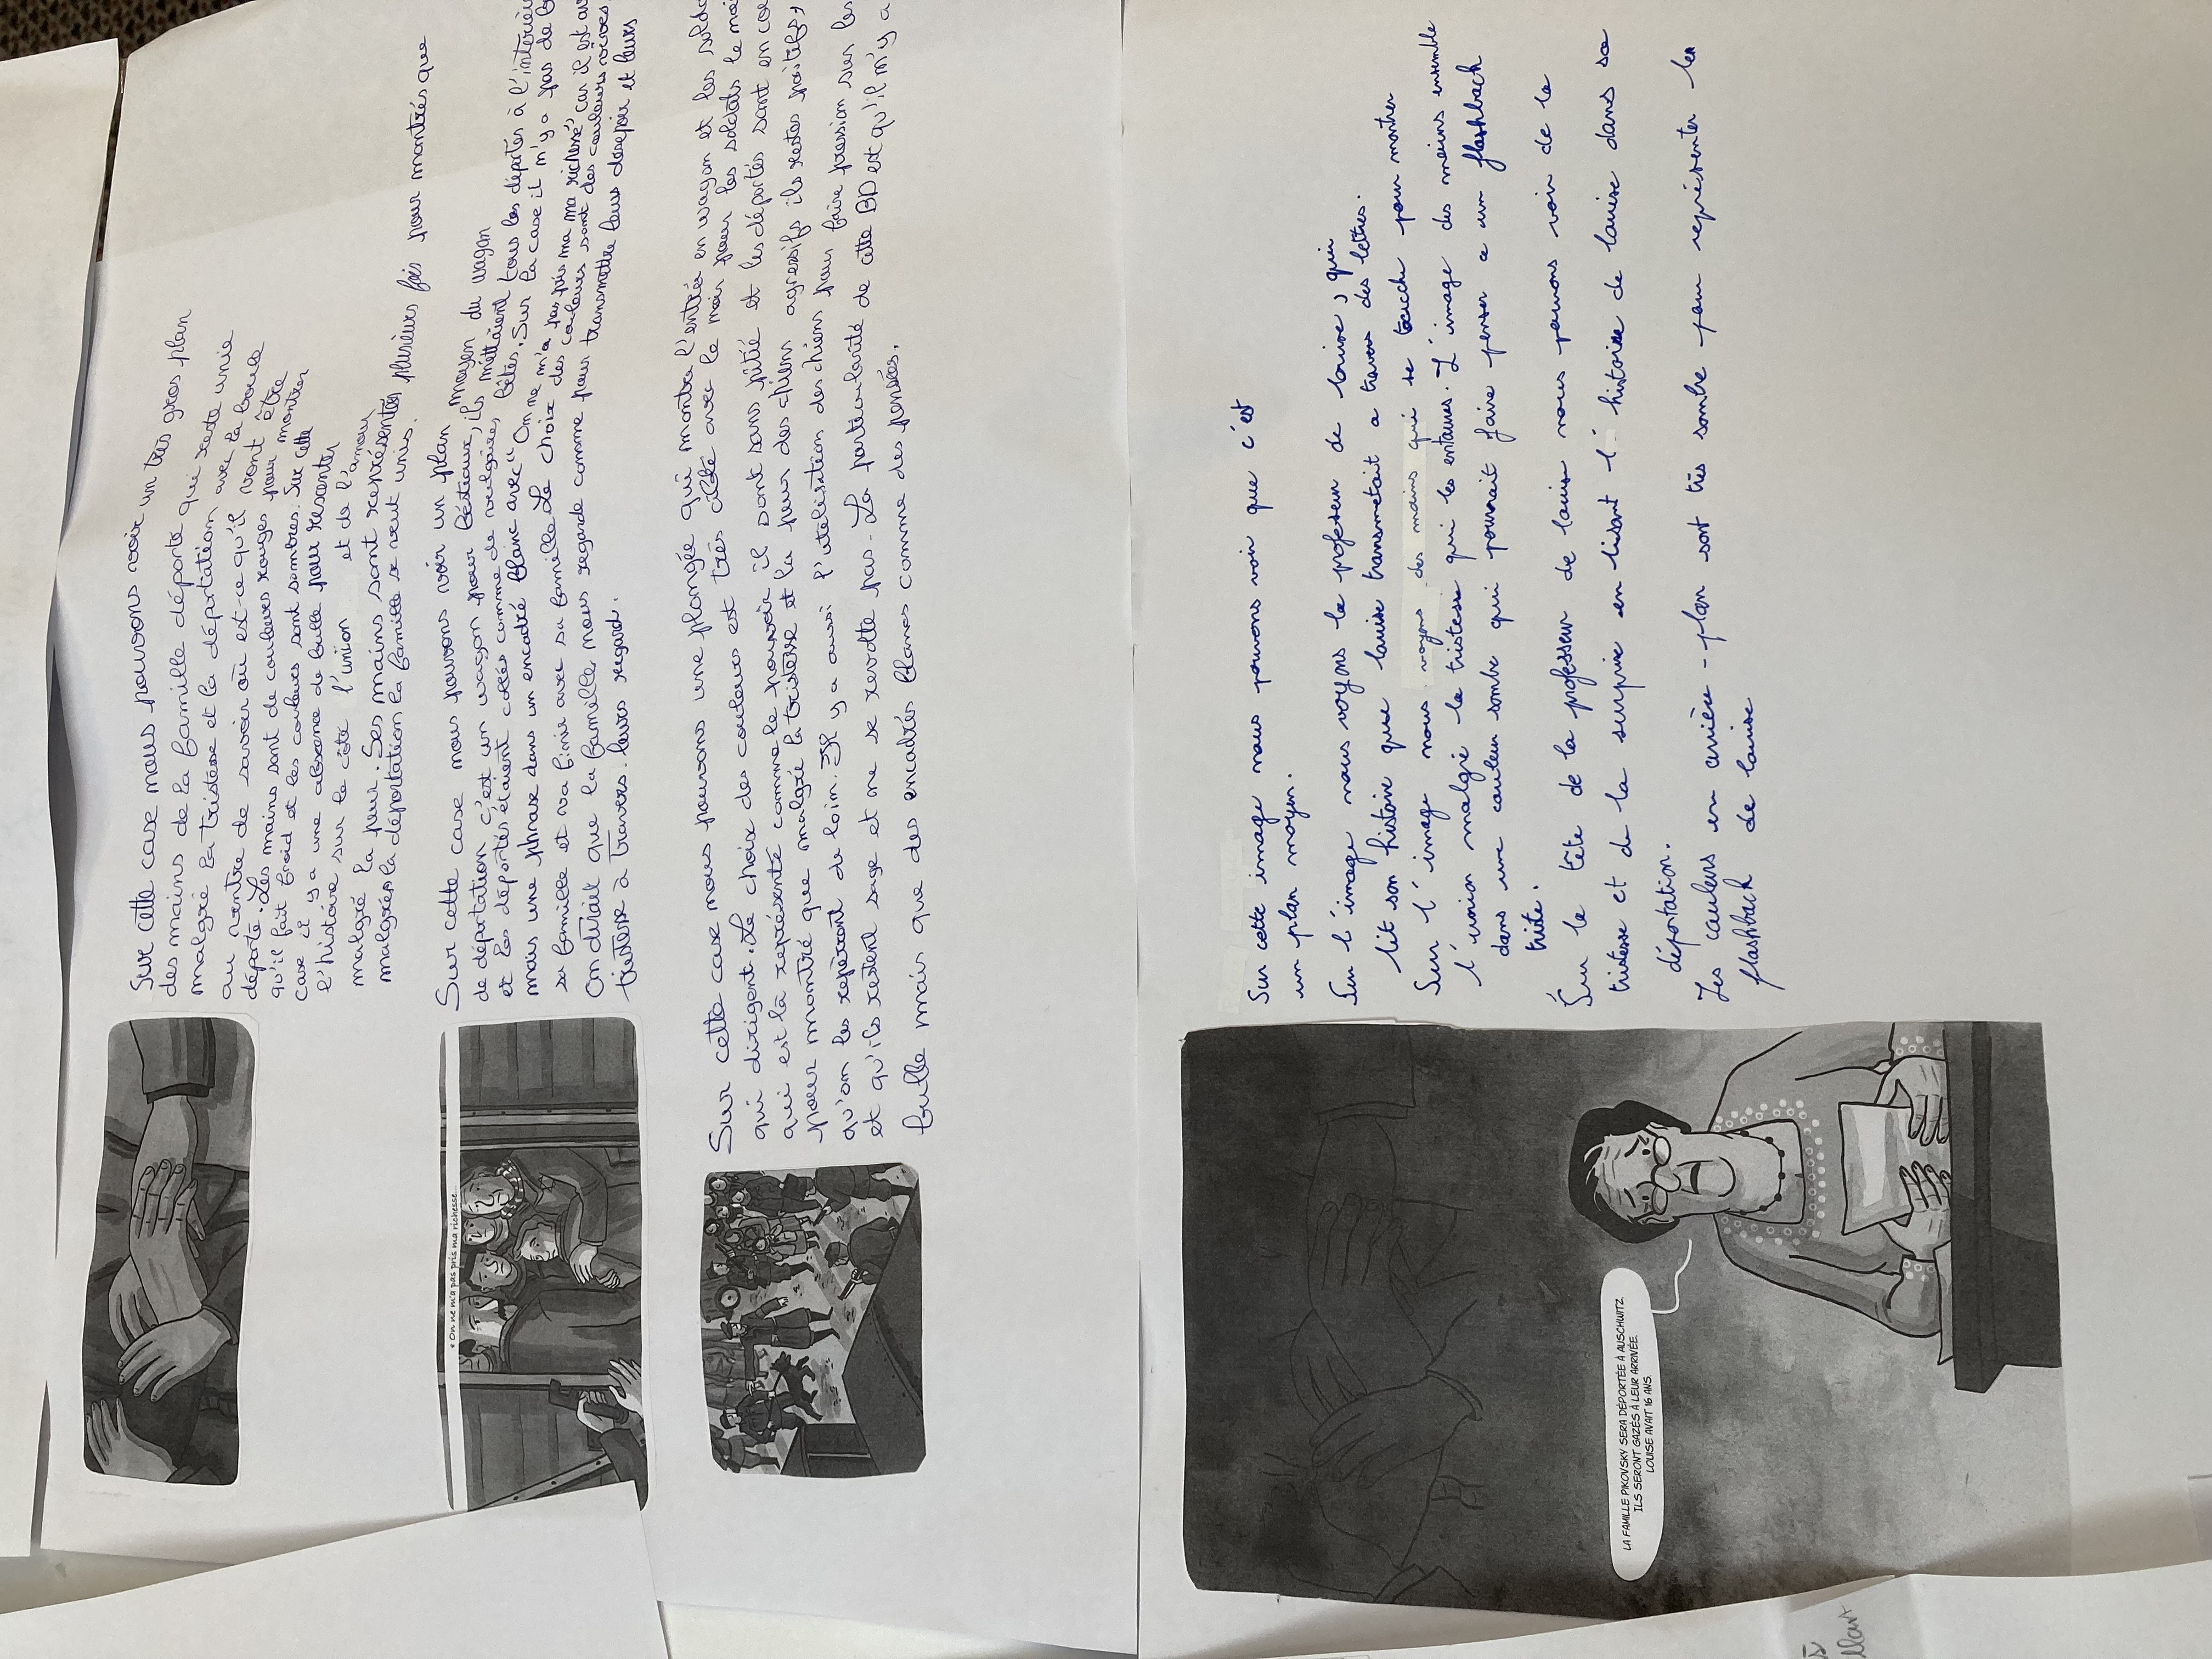 Sur cette case nous pouvons voir un très gros plan
des mains de la famille déporté qui reste unie
malgré la tristesse et la déportation avec la boule
au ventre de savoir où est-ce qu'il vont être
déporté. Les mains sont de couleurs rouges pour montrer
qu'il fait froid et les couleurs sont sombres. Sur cette
case il y a une absence de bulle pour ressentir
l'histoire sur le côté l'union et de l'amour
malgré la peur. Ses mains sont représentés plusieurs fois pour montrés que
malgrés la déportation la famille se veut unis.
« On ne m'a pas pris ma richesse...
Sur cette case nous pouvons voir un plan moyen du wagon
de déportation c'est un wagon pour bétiaux, ils mettaient tous les déportés à l'interieu
et les déportés étaient collés comme de vulgaires bêtes. Sur la case il n'y a pas de b
mais une phrase dans un encadré blanc avec "On ne m'a pas pris ma richesse", car il est a
sa famille et va finir avec sa famille. Le choix des couleurs sont des couleurs noires,
On dirait que la famille nous regarde comme pour transmettre leurs desepoir et leurs
tristesse à travers leurs regard.
Sur cette case nous pouvons une plongée qui montre l'entrée en wagon et les solda
qui dirigent. Le choix des couleurs est très ciblé avec le noir pour les soldats le noi
qui est là représenté comme le pouvoir il sont sans pitié et les déportés sont en co
pour montré que malgré la tristesse et la peur des chiens agressifs ils restes positifs,
qu'on les repèrent de loin. Il y a aussi l'utilisation des chiens pour faire pression sur les
et qu'ils restent sage et ne se revolte pas. La particularité de cette BD est qu'il n'y a
bulle mais que des encadrés blancs comme des pensées.
Sur cette image nous pouvons voir que c'est
un plan moyen.
Sur l'image nous voyons le professeur de louise, qui
lit son histoire que louise transmetait a travers des lettres.
Sur l'image nous voyons des mains qui se touche pour montrer
l'union malgré la tristesse qui les entoures. L'image des mains ensemble
dans une couleur sombre qui pourrait faire penser a un flashback
triste.
Sur la tête de la professeur de louise nous pouvons voir de la
tristesse et de la surprise en lisant l'histoire de louise dans sa
déportation.
Les couleurs en arrière-plan sont très sombre pour représenter les
flashback de louise
LA FAMILLE PIKOVSKY SERA DÉPORTÉE À AUSCHWITZ.
ILS SERONT GAZÉS À LEUR ARRIVÉE.
LOUISE AVAIT 16 ANS.